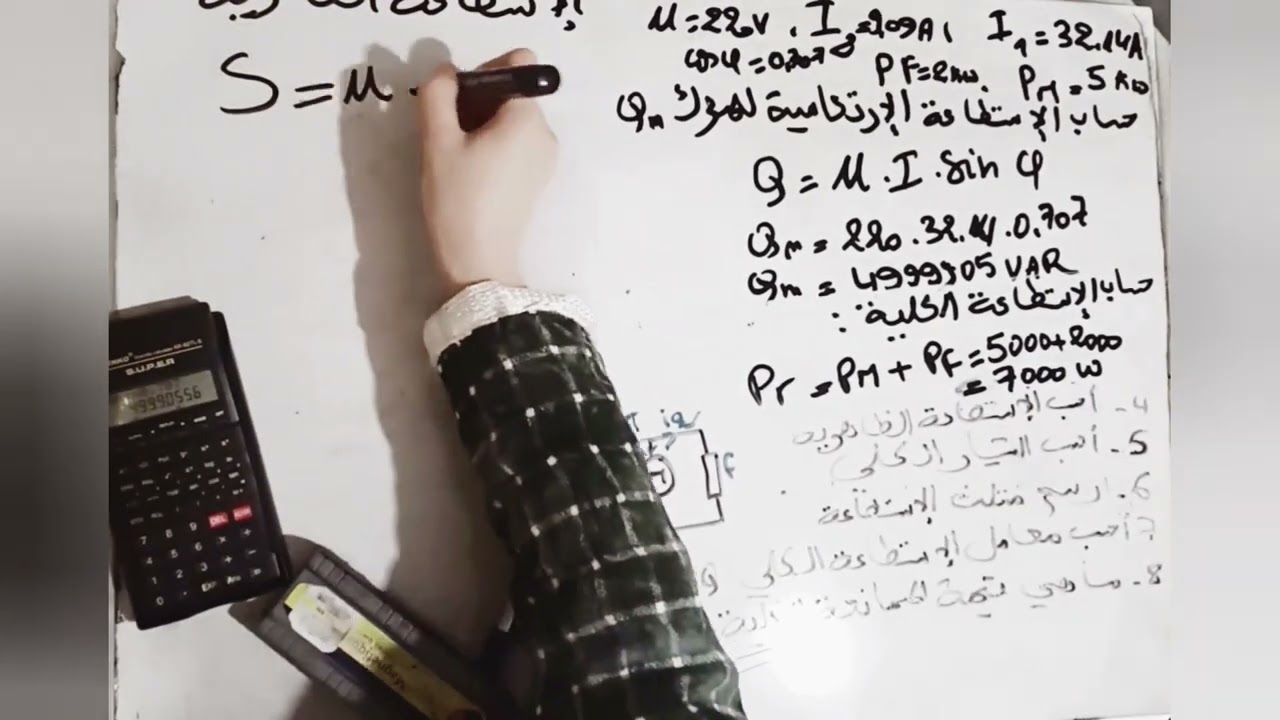 S = u .
u = 220V , I₂ = 9.09A , I₁ = 32.14A
cosφ = 0.707 PF = 2kw . PM = 5kw
حساب الإستطاعة الإرتكاسية للمحرك Qm
Q = u . I . sin φ
Qm = 220 . 32.14 . 0.707
Qm = 4999,05 VAR
حساب الإستطاعة الكلية :
PT = PM + PF = 5000+2000
= 7000 w
4- أحسب الإستطاعة الظاهرية
5- أحسب التيار الكلي
6- ارسم مثلث الإستطاعة
7- أحسب معامل الإستطاعة الكلي
8- ماهي قيمة
S.U.P.E.R
4999.0556